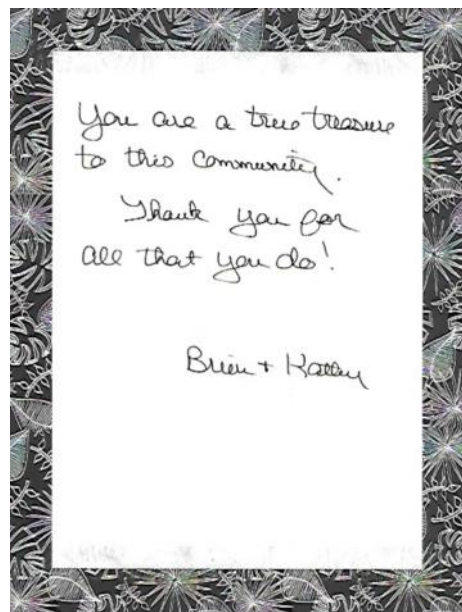 You are a true treasure
to this community.
Thank you for
all that you do!
Brien + Kathy